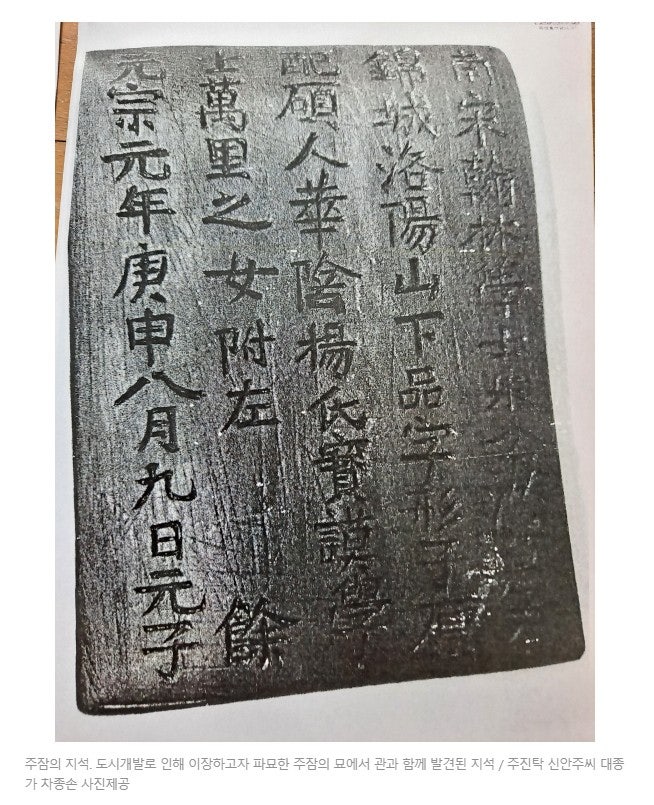 南宋翰林學士朱
錦城洛陽山下品字形子
配碩人華陰楊氏寶謨學
士萬里之女附左 餘
元宗元年庚申八月九日元子
주잠의 지석. 도시개발로 인해 이장하고자 파묘한 주잠의 묘에서 관과 함께 발견된 지석 / 주진탁 신안주씨 대종
가 차종손 사진제공